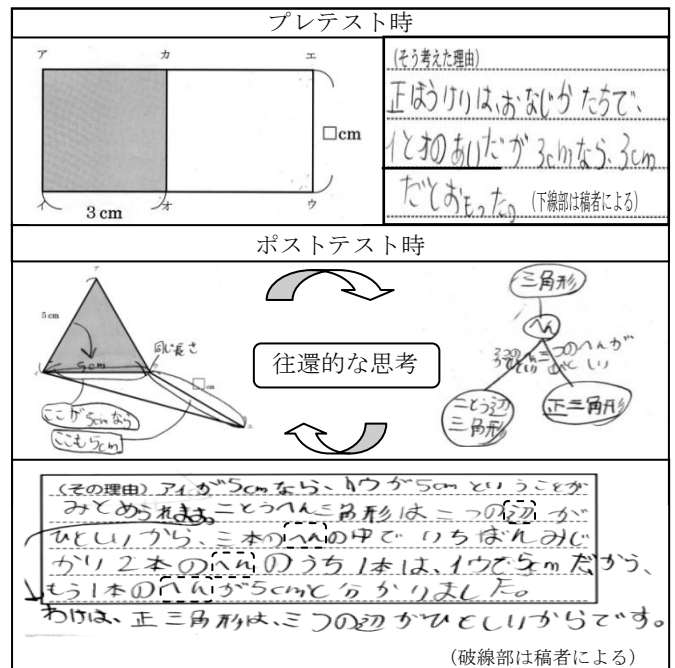 プレテスト時
ア
カ
エ
□cm
イ
3 cm
オ
ウ
(そう考えた理由)
正ほうけいは、おなじかたちで、
イとオのあいだが3cmなら、3cm
だとおもった。
(下線部は稿者による)
ポストテスト時
ア
5 cm
5cm
同じ長さ
□cm
エ
ここが5cmなら
ここも5cm
往還的な思考
三角形
へん
二とう辺
三角形
正三角形
(その理由) アイが5cmなら、イウが5cmということが
みとめられます。二とうへん三角形は二つの辺が
ひとしいから、三本のへんの中でいちばんみじ
かい2本のへんのうち1本は、イウで5cmだから、
もう1本のへんが5cmと分かりました。
わけは、正三角形は、三つの辺がひとしいからです。
(破線部は稿者による)